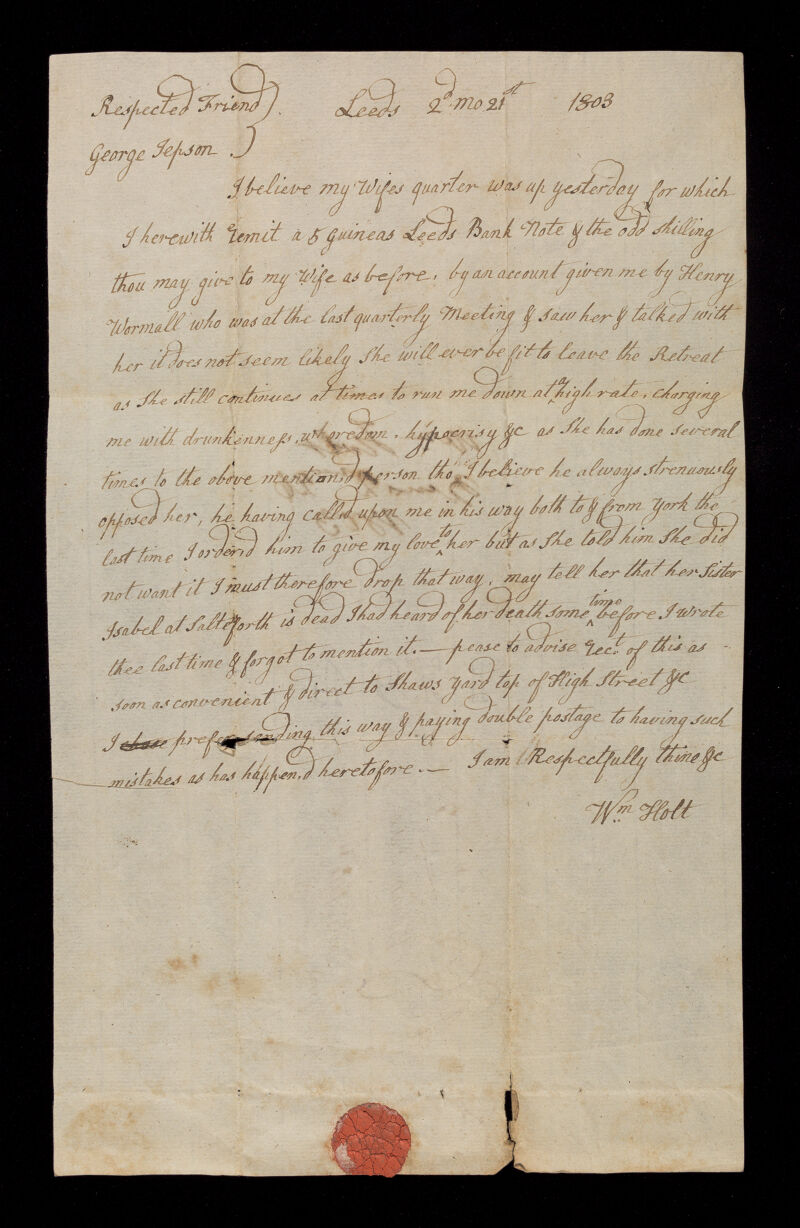 Respected Friend) . Leeds 2d mo 21st 1803
George Jepson .)
I believe my Wifes quarter was up yesterday for which
I herewith remit a 5 guineas Leeds Bank Note & the odd shilling
thou may give to my Wife as before. by an account given me by Henry
Wormall who was at the last quarterly Meeting & saw her & talked with
her it does not seem likely She will ever be fit to leave the Retreat
as She still continues at times to run me down at a high rate, charging
me with drunkenness, whoredom, hypocrisy &c as She has done several
times to the above mention,d person tho I believe he always strenuously
opposed her, he having call,d upon me in his way both to & from York the
last time I order,d him to give my love to her but as She told him She did
not want it I must therefore drop that way, may tell her that her Sister
Isabel at Salterforth is dead I had heard of her death some time before I wrote
thee last time & forgot to mention it. — pease to advise rect. of this as -
soon as convenient & direct to Shaws Yard top of High Street &c
I chose prefer sending this way & paying double postage to having such
mistakes as has happen,d heretofore. — I am Respectfully thine &c
Wm Holt